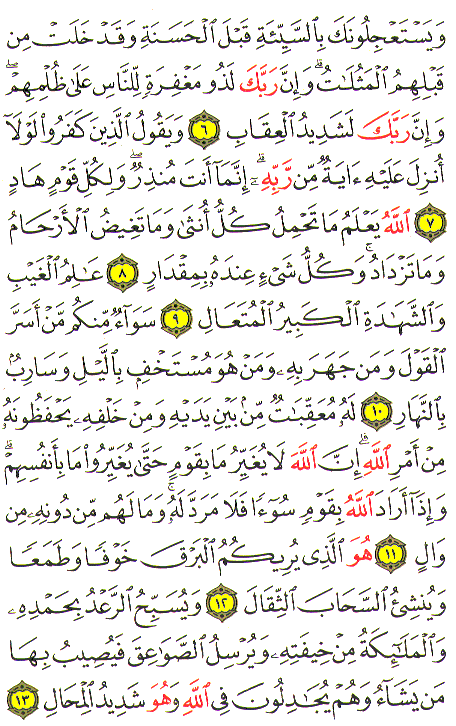 وَيَسْتَعْجِلُونَكَ بِٱلسَّيِّئَةِ قَبْلَ ٱلْحَسَنَةِ وَقَدْ خَلَتْ مِن
قَبْلِهِمُ ٱلْمَثُلَـٰتُ ۗ وَإِنَّ رَبَّكَ لَذُو مَغْفِرَةٍ لِّلنَّاسِ عَلَىٰ ظُلْمِهِمْ ۖ
وَإِنَّ رَبَّكَ لَشَدِيدُ ٱلْعِقَابِ ٦ وَيَقُولُ ٱلَّذِينَ كَفَرُوا۟ لَوْلَآ
أُنزِلَ عَلَيْهِ ءَايَةٌ مِّن رَّبِّهِۦٓ ۗ إِنَّمَآ أَنتَ مُنذِرٌ ۖ وَلِكُلِّ قَوْمٍ هَادٍ
٧ ٱللَّهُ يَعْلَمُ مَا تَحْمِلُ كُلُّ أُنثَىٰ وَمَا تَغِيضُ ٱلْأَرْحَامُ
وَمَا تَزْدَادُ ۖ وَكُلُّ شَىْءٍ عِندَهُۥ بِمِقْدَارٍ ٨ عَـٰلِمُ ٱلْغَيْبِ
وَٱلشَّهَـٰدَةِ ٱلْكَبِيرُ ٱلْمُتَعَالِ ٩ سَوَآءٌ مِّنكُم مَّنْ أَسَرَّ
ٱلْقَوْلَ وَمَن جَهَرَ بِهِۦ وَمَنْ هُوَ مُسْتَخْفٍۭ بِٱلَّيْلِ وَسَارِبٌۢ
بِٱلنَّهَارِ ١٠ لَهُۥ مُعَقِّبَـٰتٌ مِّنۢ بَيْنِ يَدَيْهِ وَمِنْ خَلْفِهِۦ يَحْفَظُونَهُۥ
مِنْ أَمْرِ ٱللَّهِ ۗ إِنَّ ٱللَّهَ لَا يُغَيِّرُ مَا بِقَوْمٍ حَتَّىٰ يُغَيِّرُوا۟ مَا بِأَنفُسِهِمْ ۗ
وَإِذَآ أَرَادَ ٱللَّهُ بِقَوْمٍ سُوٓءًا فَلَا مَرَدَّ لَهُۥ ۚ وَمَا لَهُم مِّن دُونِهِۦ مِن
وَالٍ ١١ هُوَ ٱلَّذِى يُرِيكُمُ ٱلْبَرْقَ خَوْفًا وَطَمَعًا
وَيُنشِئُ ٱلسَّحَابَ ٱلثِّقَالَ ١٢ وَيُسَبِّحُ ٱلرَّعْدُ بِحَمْدِهِۦ
وَٱلْمَلَـٰٓئِكَةُ مِنْ خِيفَتِهِۦ وَيُرْسِلُ ٱلصَّوَٰعِقَ فَيُصِيبُ بِهَا
مَن يَشَآءُ وَهُمْ يُجَـٰدِلُونَ فِى ٱللَّهِ وَهُوَ شَدِيدُ ٱلْمِحَالِ ١٣